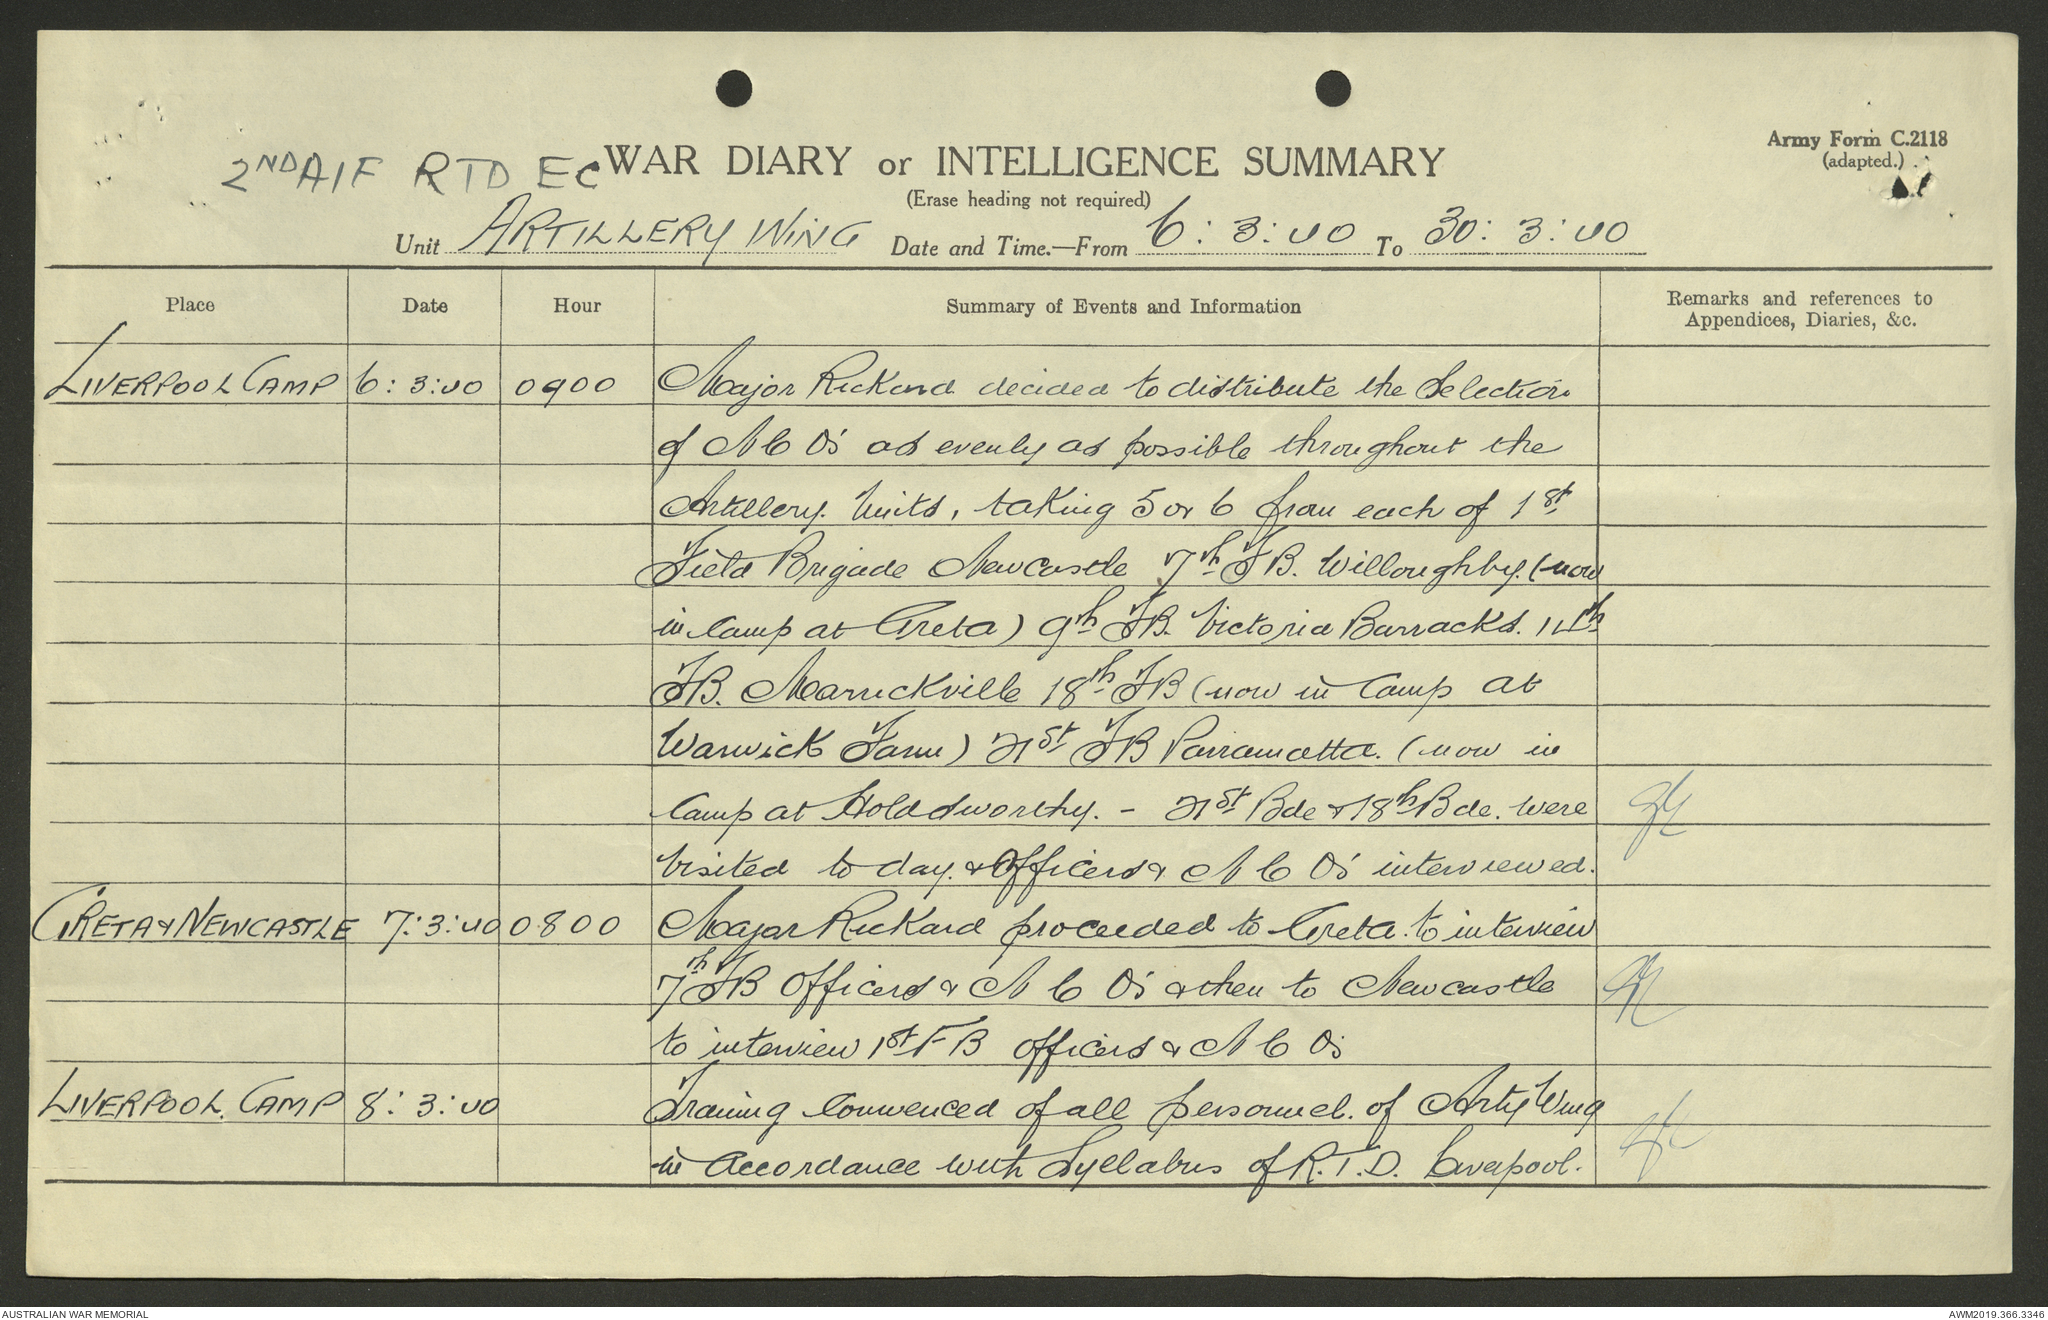 Army Form C.2118
(adapted.)
2ND AIF RTD EC WAR DIARY or INTELLIGENCE SUMMARY
(Erase heading not required)
Unit ARTILLERY WING Date and Time.—From 6:3:40 To 30:3:40
Place Date Hour Summary of Events and Information Remarks and references to Appendices, Diaries, &c.
LIVERPOOL CAMP 6:3:40 0900 Major Rickard decided to distribute the Selection
of N C O's as evenly as possible throughout the
Artillery Units, taking 5 or 6 from each of 1st
Field Brigade Newcastle 7th FB. Willoughby. (now
in Camp at Greta) 9th FB. Victoria Barracks. 14th
FB. Marrickville 18th FB (now in Camp at
Warwick Farm) 21st FB Parramatta. (now in
Camp at Holdsworthy. - 21st Bde & 18th Bde. were
Visited to day. & Officers & N C O's interviewed.
GRETA & NEWCASTLE 7:3:40 0800 Major Rickard proceeded to Greta. to interview
7th FB Officers & N C O's & then to Newcastle
to interview 1st FB officers & N C Os
LIVERPOOL. CAMP 8:3:40 Training Commenced of all personnel. of Arty Wing
in Accordance with Syllabus of R.T.D. Liverpool.
AUSTRALIAN WAR MEMORIAL AWM2019.366.3346